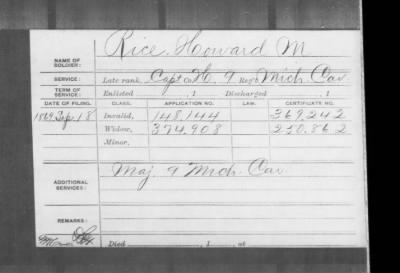 Rice, Howard M
NAME OF SOLDIER:
SERVICE: Late rank, Capt Co. H, 9 Reg't Mich. Cav
TERM OF SERVICE: Enlisted , 1 Discharged , 1
DATE OF FILING. CLASS. APPLICATION NO. LAW. CERTIFICATE NO.
1869 Sep. 18 Invalid, 148,144 369,242
Widow, 374,908 250,862
Minor,
ADDITIONAL SERVICES: Maj. 9 Mich. Cav
REMARKS:
Died , 1 , at